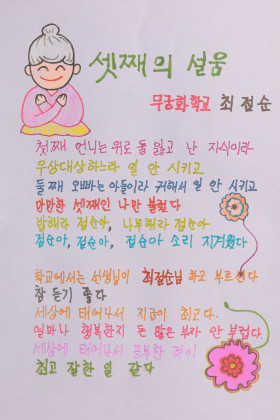 셋째의 설움
무궁화학교 최점순
첫째 언니는 위로 둘 잃고 난 자식이라
우상대상하느라 일 안 시키고
둘째 오빠는 아들이라 귀해서 일 안 시키고
만만한 셋째인 나만 불렀다
밥해라 점순아, 나무해라 점순아
점순아, 점순아, 점순아 소리 지겨웠다
학교에서는 선생님이 최점순님 하고 부르신다
참 듣기 좋다
세상에 태어나서 지금이 최고다.
얼마나 행복한지 돈 많은 부자 안 부럽다.
세상에 태어나서 공부한 것이
최고 잘한 일 같다